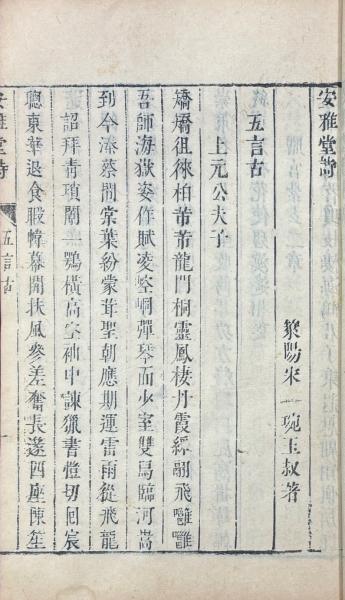 安雅堂詩
萊陽宋琬玉叔著
五言古
上元公夫子
矯矯徂徠柏芾芾龍門桐靈鳳棲丹霞綵翮飛雝雝
吾師海嶽姿作賦凌崆峒彈琴面少室雙舄臨河嵩
到今溱蔡間棠葉紛蒙茸聖朝應期運雷雨從飛龍
詔拜青瑣闥一鶚橫高空袖中諫獵書愷切回宸
聰東華退食暇幃幕開扶風參差奮長遂四座陳笙
安雅堂詩
五言古
一